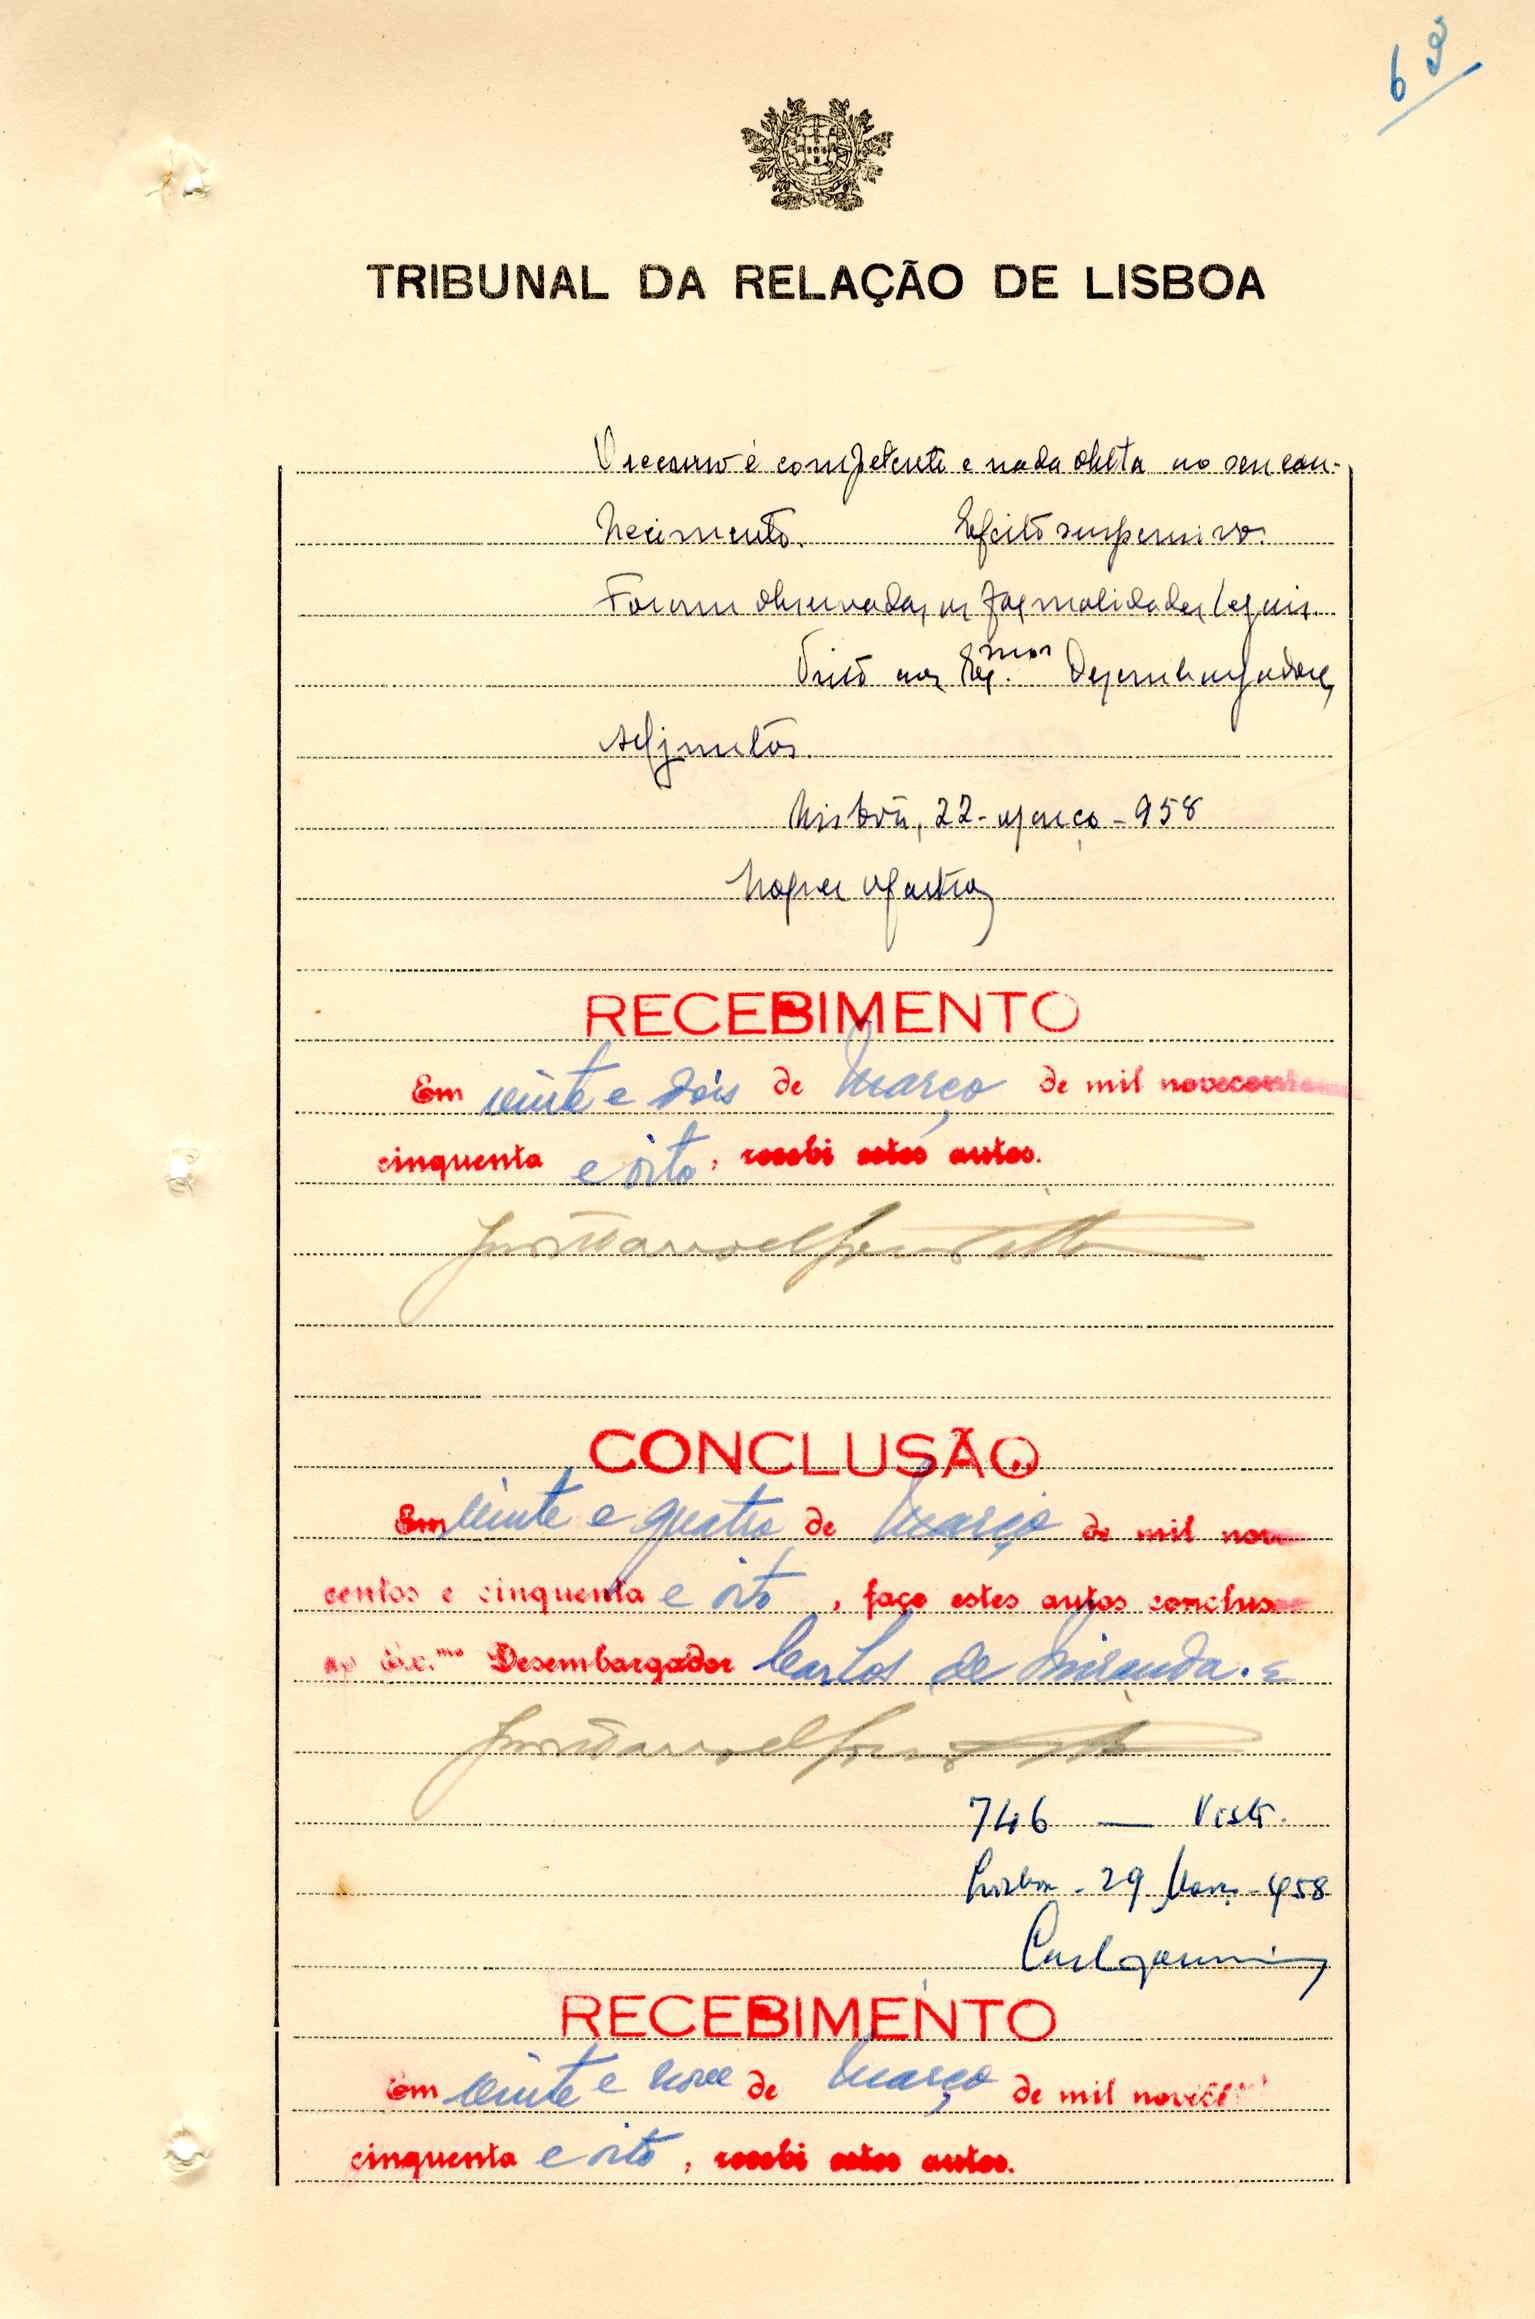 TRIBUNAL DA RELAÇÃO DE LISBOA
O recurso é competente e nada obsta ao seu con-
hecimento. Efeito suspensivo.
Foram observadas as formalidades legais.
Visto aos Ex.mos Desembargadores
Adjuntos.
Lisboa, 22-março-958
RECEBIMENTO
Em vinte e dois de Março de mil novecentos
cinquenta e oito, recebi estes autos.
CONCLUSÃO
Em vinte e quatro de Março de mil nove
centos e cinquenta e oito, faço estes autos conclusos
ao Ex.mo Desembargador Carlos de Miranda.
746 — Visto.
Lisboa - 29 Março - 958
RECEBIMENTO
Em vinte e nove de Março de mil novece
cinquenta e oito, recebi estes autos.